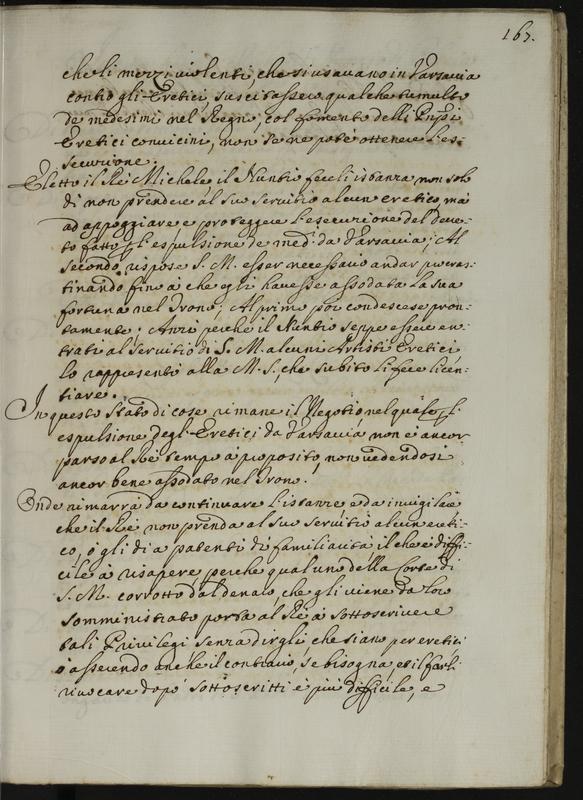 167.
che li mezzi violenti, che si usavano in Varsavia
contro gli Eretici, suscitassero qualche tumulto
de medesimi nel Regno, col fomento delli Prñpi
Eretici convicini, non se ne poté ottenere l'es=
secuzione.
Eletto il Rè Michele il Nuntio feceli istanza non solo
di non prendere al suo servitio alcun eretico, mà
ad appoggiare, e proteggere l'esecuzione del decre=
to fatto p̲ l'espulsione de med.i da Varsavia; Al
secondo rispose S. M. esser necessario andar procras=
tinando fino à che egli havesse assodata la sua
fortuna nel Trono; Al primo poi condescese pron=
tamente; Anzi perche il Nuntio seppe essere en=
trati al servitio di S. M. alcuni Artisti Eretici
lo rappresentò alla M. S., che subito li fece licen=
tiare.
In questo stato di cose rimane il Negotio nel quale p̲ l'
espulsione degl'Eretici da Varsavia non è ancor
parso al Rè tempo à proposito, non vedendosi
ancor bene assodato nel Trono.
Onde rimarrà da continuare l'istanze, e da invigilare
che il Rè non prenda al suo servitio alcun ereti=
co, ò gli dia patenti di familiarità il che è diffi=
cile à risapere perche qualcuno della Corte di
S. M. corrotto dal denaro, che gli viene da loro
somministrato porta al Rè à sottoscrivere
tali Privilegi senza dirgli, che siano per eretici
ò asserendo anche il contrario, se bisogna, et il farli
rivocare dopò sottoscritti è più difficile, e